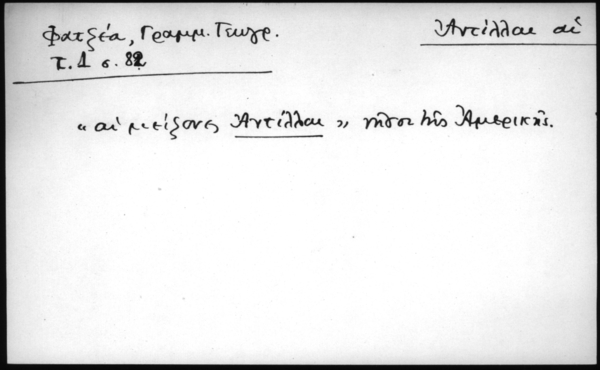 Φατζέα, Γραμμ. Γεωγρ.
Τ. 1 σ. 82
Ἀντίλλαι αἱ
«αἱ μείζονες Ἀντίλλαι» νῆσοι τῆς Ἀμερικῆς.